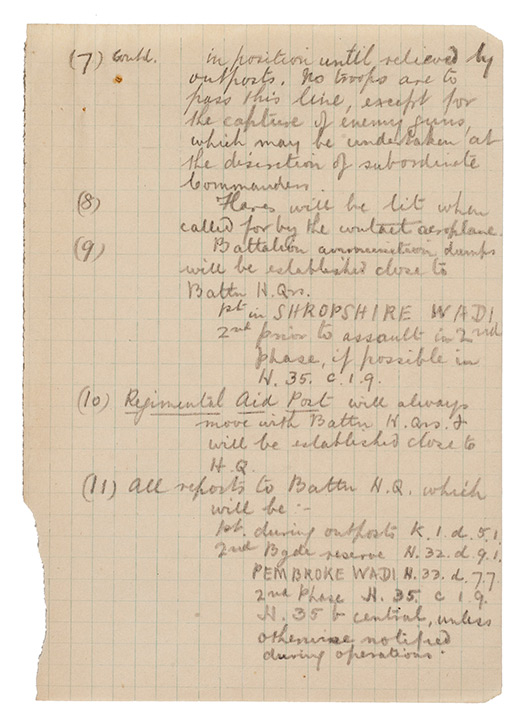 (7) Contd. in position until relieved by
outposts. No troops are to
pass this line, except for
the capture of enemy guns,
which may be undertaken at
the discretion of subordinate
Commanders.
(8) Flares will be lit when
called for by the contact aeroplane.
(9) Battalion ammunition dumps
will be established close to
Battn H.Qrs.
1st in SHROPSHIRE WADI
2nd prior to assault in 2nd
phase, if possible in
H. 35. c. 1. 9.
(10) Regimental Aid Post will always
move with Battn H.Qrs. &
will be established close to
H.Q.
(11) All reports to Battn H.Q. which
will be :-
1st. during outposts K. 1. d. 5. 1.
2nd Bgde reserve H. 32. d. 9. 1.
PEMBROKE WADI H. 33. d. 7. 7.
2nd Phase H. 35. c 1. 9.
H. 35 b central, unless
otherwise notified
during operations.